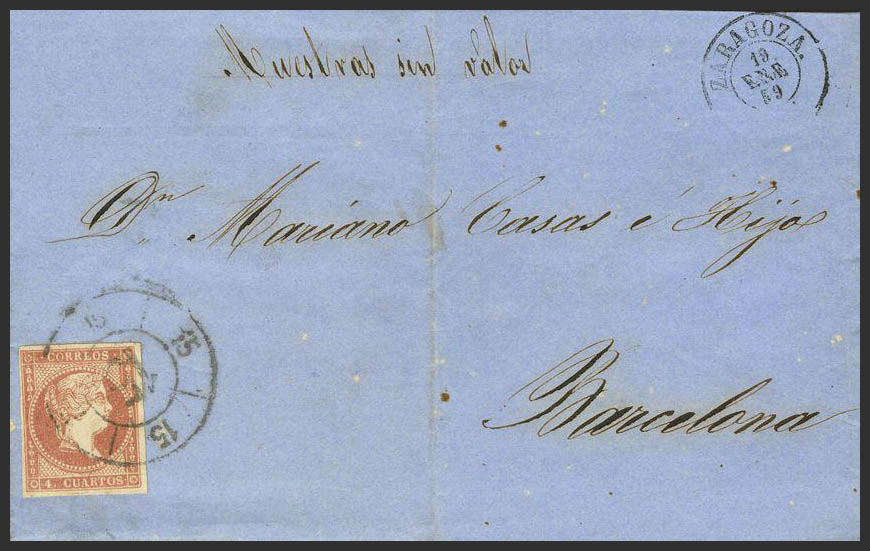 Muestras sin valor
ZARAGOZA.
19
ENE
59
Dn. Mariano Casas é Hijo
Barcelona
15
15
15
CORREOS
4. CUARTOS